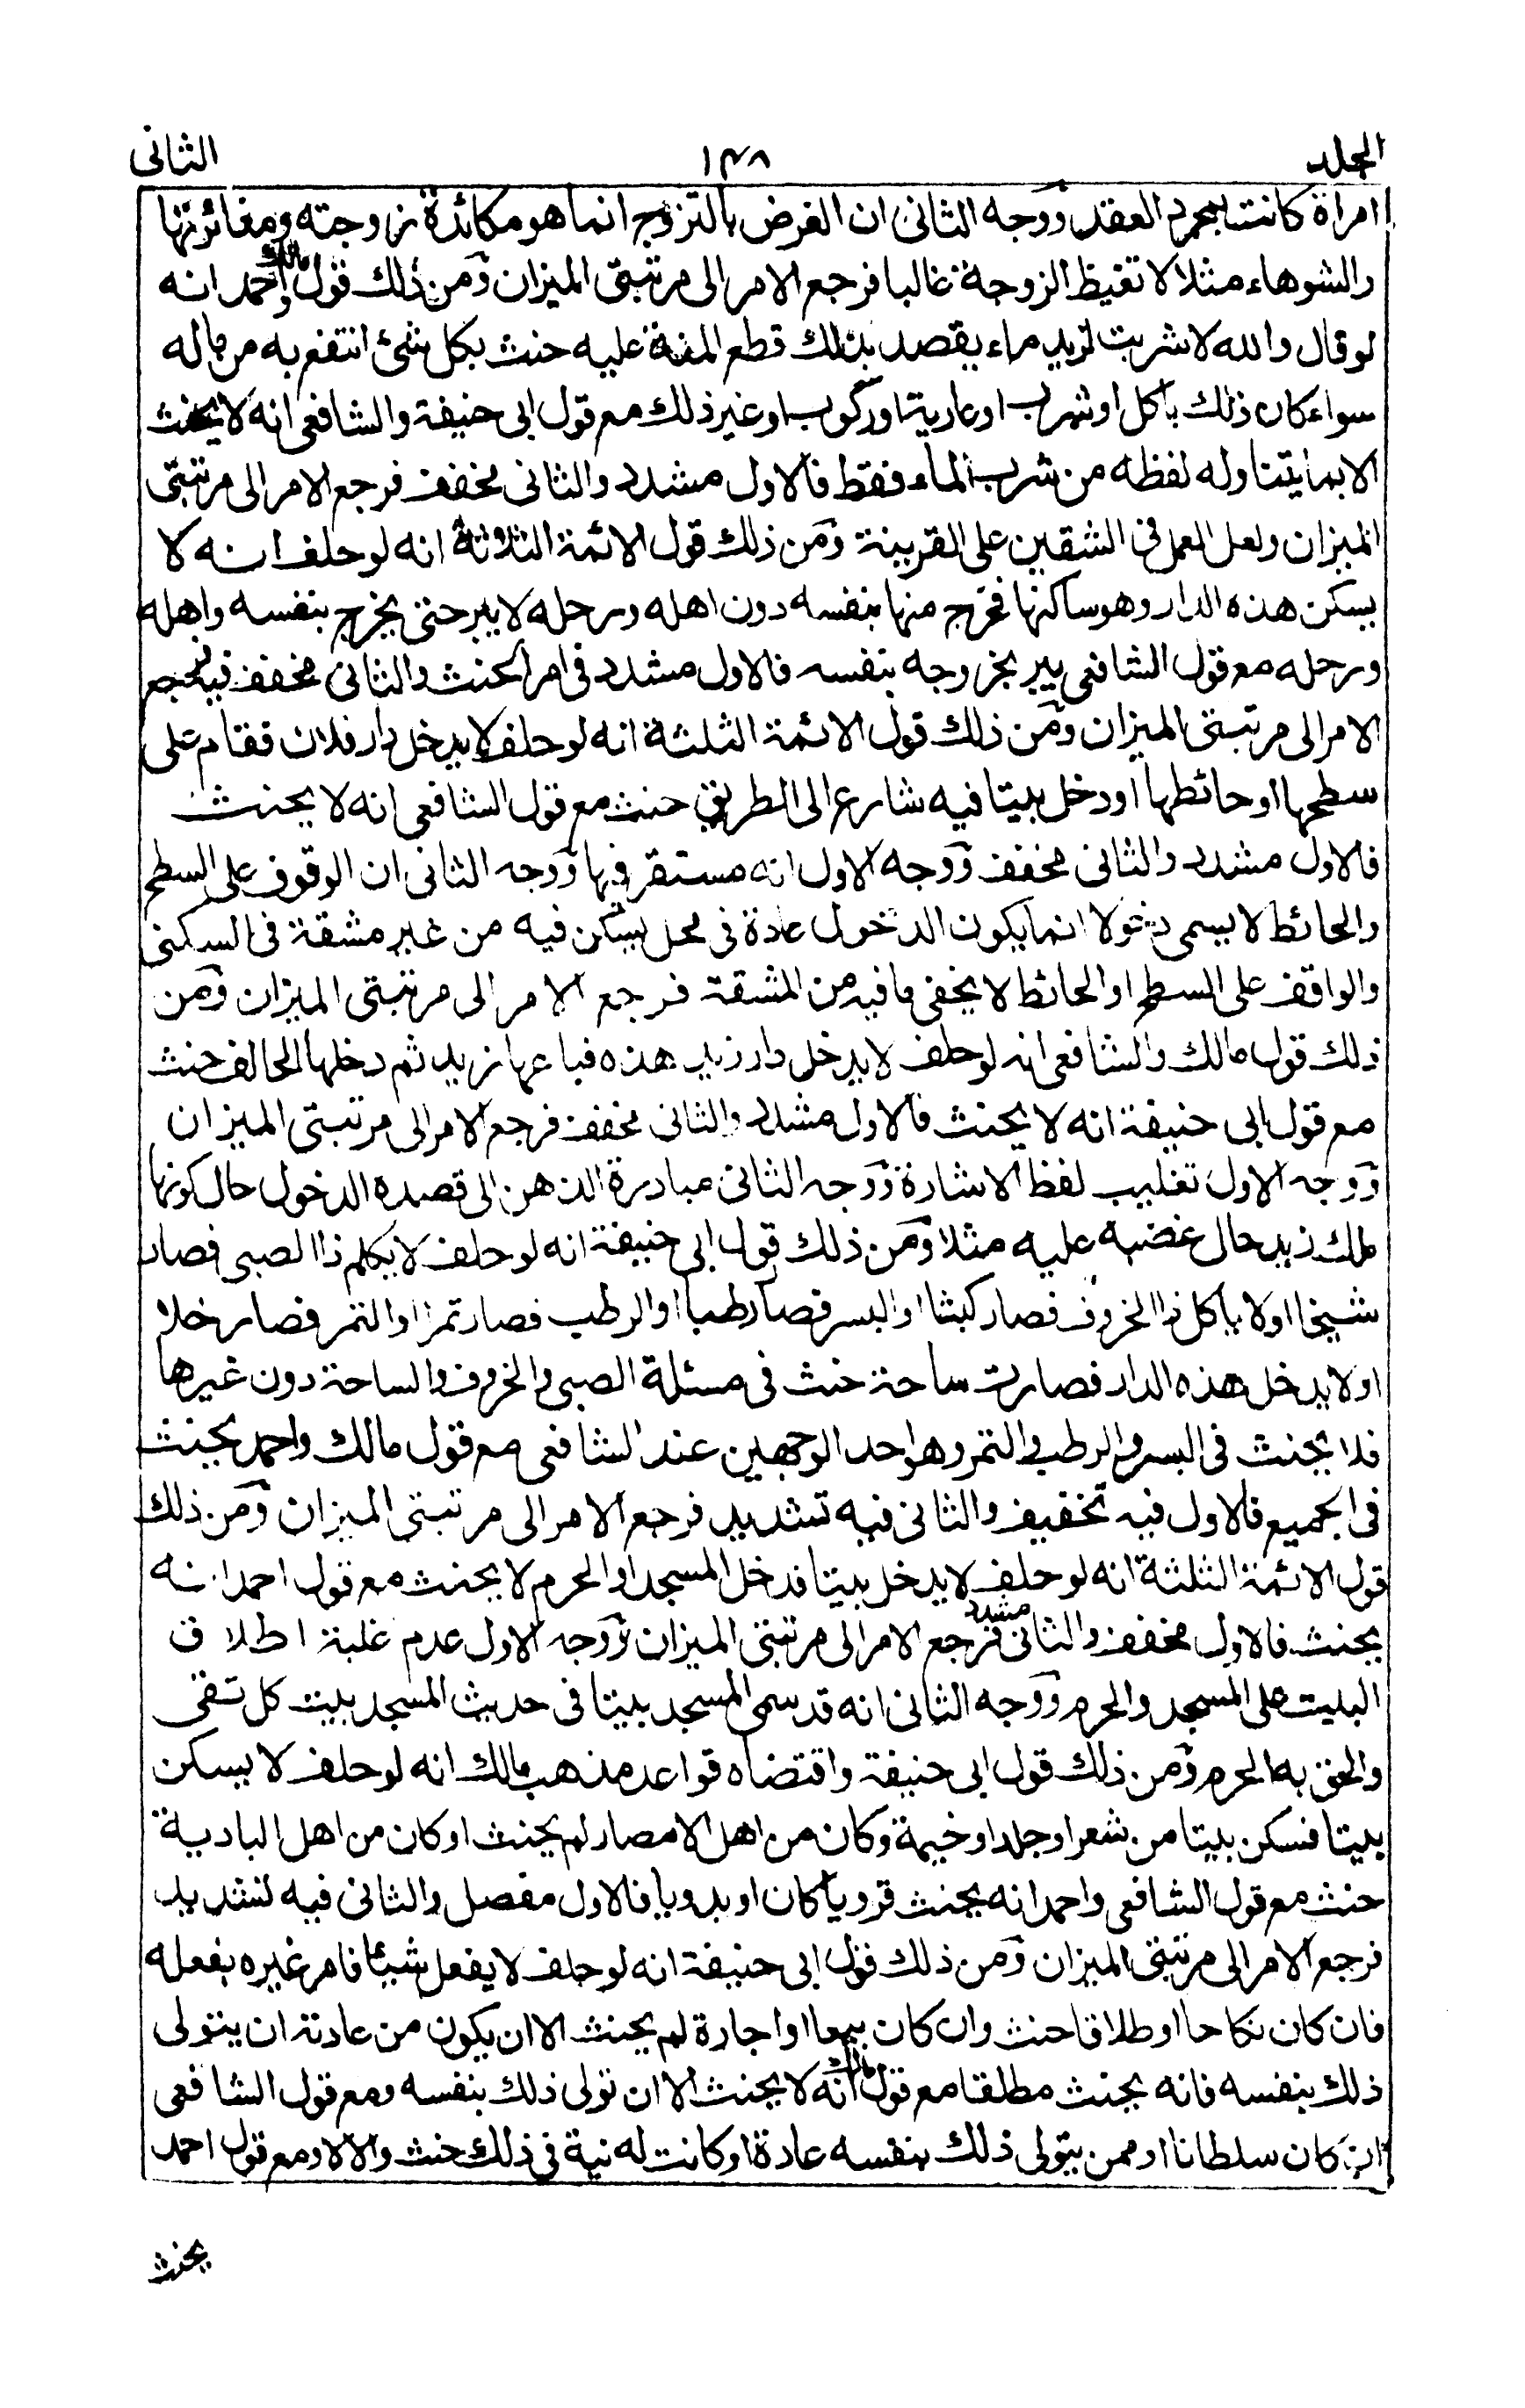 الجلد
١٤٨
الثانى
امرأة كانت بمجرد العقد ووجه الثانى ان الغرض بالتزوج انما هو مكائدة زوجته ومغائرتها
والشوهاء مثلا لا تغيظ الزوجة غالبا فرجع الامر الى مرتبتى الميزان ومن ذلك قول مالك واحمد انه
لو قال والله لا شربت لزيد ماء يقصد بذلك قطع المنة عليه حنث بكل شئ انتفع به من ماله
سواء كان ذلك باكل او شرب او عارية او ركوب او غير ذلك مع قول ابى حنيفة والشافعى انه لا يحنث
الا بما يتناوله لفظه من شرب الماء فقط فالاول مشدد والثانى مخفف فرجع الامر الى مرتبتى
الميزان ولعل العمل فى الشقين على القرينة ومن ذلك قول الائمة الثلاثة انه لو حلف انه لا
يسكن هذه الدار وهو ساكنها فخرج منها بنفسه دون اهله ورحله لا يبر حتى يخرج بنفسه واهله
ورحله مع قول الشافعى يبر بخروجه بنفسه فالاول مشدد فى امر الحنث والثانى مخفف فيه فرجع
الامر الى مرتبتى الميزان ومن ذلك قول الائمة الثلثة انه لو حلف لا يدخل دار فلان فقام على
سطحها او حائطها او دخل بيتا فيه شارع الى الطريق حنث مع قول الشافعى انه لا يحنث
فالاول مشدد والثانى مخفف ووجه الاول انه مستقر فيها ووجه الثانى ان الوقوف على السطح
والحائط لا يسمى دخولا انما يكون الدخول عادة فى محل يسكن فيه من غير مشقة فى السكنى
والواقف على السطح او الحائط لا يخفى ما فيه من المشقة فرجع الامر الى مرتبتى الميزان ومن
ذلك قول مالك والشافعى انه لو حلف لا يدخل دار زيد هذه فباعها زيد ثم دخلها الحالف حنث
مع قول ابى حنيفة انه لا يحنث فالاول مشدد والثانى مخفف فرجع الامر الى مرتبتى الميزان
ووجه الاول تغليب لفظ الاشارة ووجه الثانى مبادرة الذهن الى قصده الدخول حال كونها
ملك زيد حال غضبه عليه مثلا ومن ذلك قول ابى حنيفة انه لو حلف لا يكلم ذا الصبى فصار
شيخا او لا ياكل ذا الخروف فصار كبشا او البسر فصار رطبا او الرطب فصار تمرا او التمر فصار خلا
او لا يدخل هذه الدار فصارت ساحة حنث فى مسئلة الصبى والخروف والساحة دون غيرها
فلا يحنث فى البسر والرطب والتمر وهو احد الوجهين عند الشافعى مع قول مالك واحمد يحنث
فى الجميع فالاول فيه تخفيف والثانى فيه تشديد فرجع الامر الى مرتبتى الميزان ومن ذلك
قول الائمة الثلثة انه لو حلف لا يدخل بيتا فدخل المسجد او الحرم لا يحنث مع قول احمد انه
يحنث فالاول مخفف والثانى مشدد فرجع الامر الى مرتبتى الميزان ووجه الاول عدم غلبة اطلاق
البيت على المسجد والحرم ووجه الثانى انه قد سمى المسجد بيتا فى حديث المسجد بيت كل تقى
والحق به الحرم ومن ذلك قول ابى حنيفة واقتضاه قواعد مذهب مالك انه لو حلف لا يسكن
بيتا فسكن بيتا من شعر او جلد او خيمة وكان من اهل الامصار لم يحنث او كان من اهل البادية
حنث مع قول الشافعى واحمد انه يحنث قرويا كان او بدويا فالاول مفصل والثانى فيه تشديد
فرجع الامر الى مرتبتى الميزان ومن ذلك قول ابى حنيفة انه لو حلف لا يفعل شيئا فامر غيره بفعله
فان كان نكاحا او طلاقا حنث وان كان بيعا او اجارة لم يحنث الا ان يكون من عادته ان يتولى
ذلك بنفسه فانه يحنث مطلقا مع قول مالك انه لا يحنث الا ان تولى ذلك بنفسه ومع قول الشافعى
ان كان سلطانا او ممن يتولى ذلك بنفسه عادة او كانت له نية فى ذلك حنث والا لا ومع قول احمد
يحنث